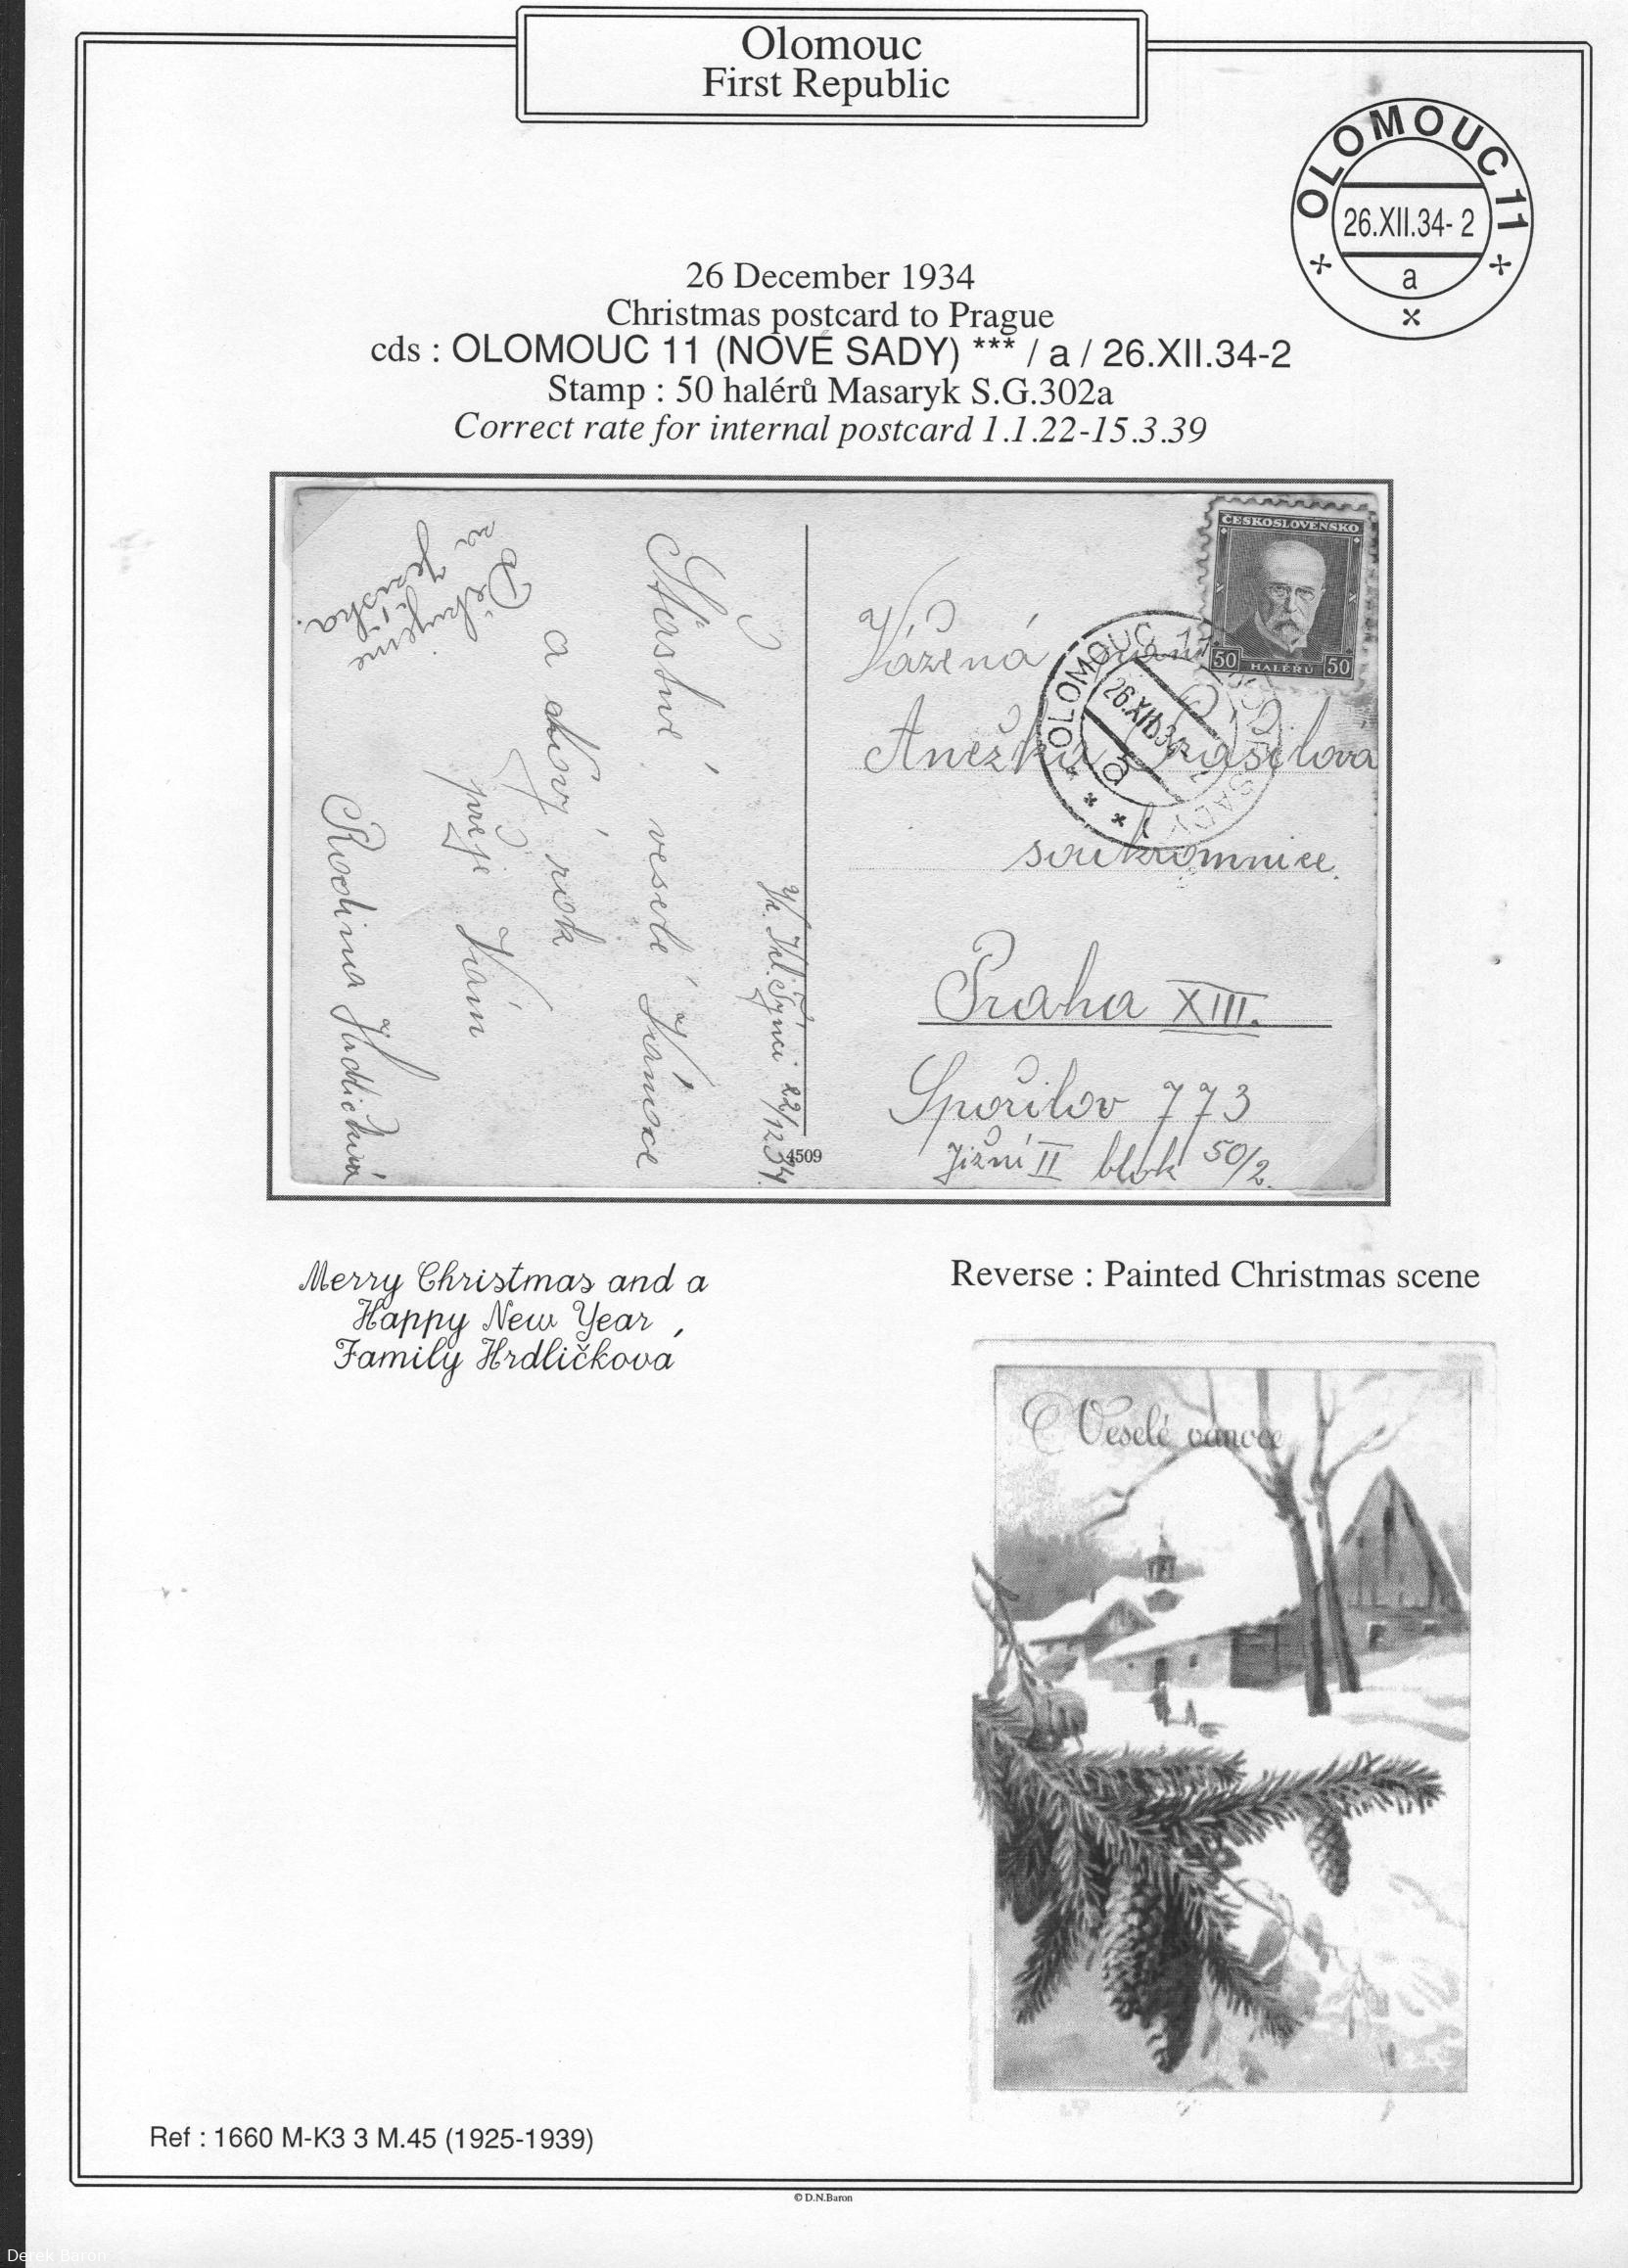 Olomouc
First Republic
OLOMOUC 11
26.XII.34- 2
a
26 December 1934
Christmas postcard to Prague
cds : OLOMOUC 11 (NOVÉ SADY) *** / a / 26.XII.34-2
Stamp : 50 halérů Masaryk S.G.302a
Correct rate for internal postcard 1.1.22-15.3.39
ČESKOSLOVENSKO
50 HALÉRŮ 50
OLOMOUC 11
26.XII.34
a
Vážená
Anežka
soukromnice.
Praha XIII.
Spořilov 773
Jižní II blok 50/2.
22/12 34.
Šťastné veselé Vánoce
a Nový rok
přeje Vám
Rodina Hrdličková
Děkujeme
za Ježíška.
4509
Merry Christmas and a
Happy New Year,
Family Hrdličková
Reverse : Painted Christmas scene
Veselé vánoce
Ref : 1660 M-K3 3 M.45 (1925-1939)
© D.N.Baron
Derek Baron